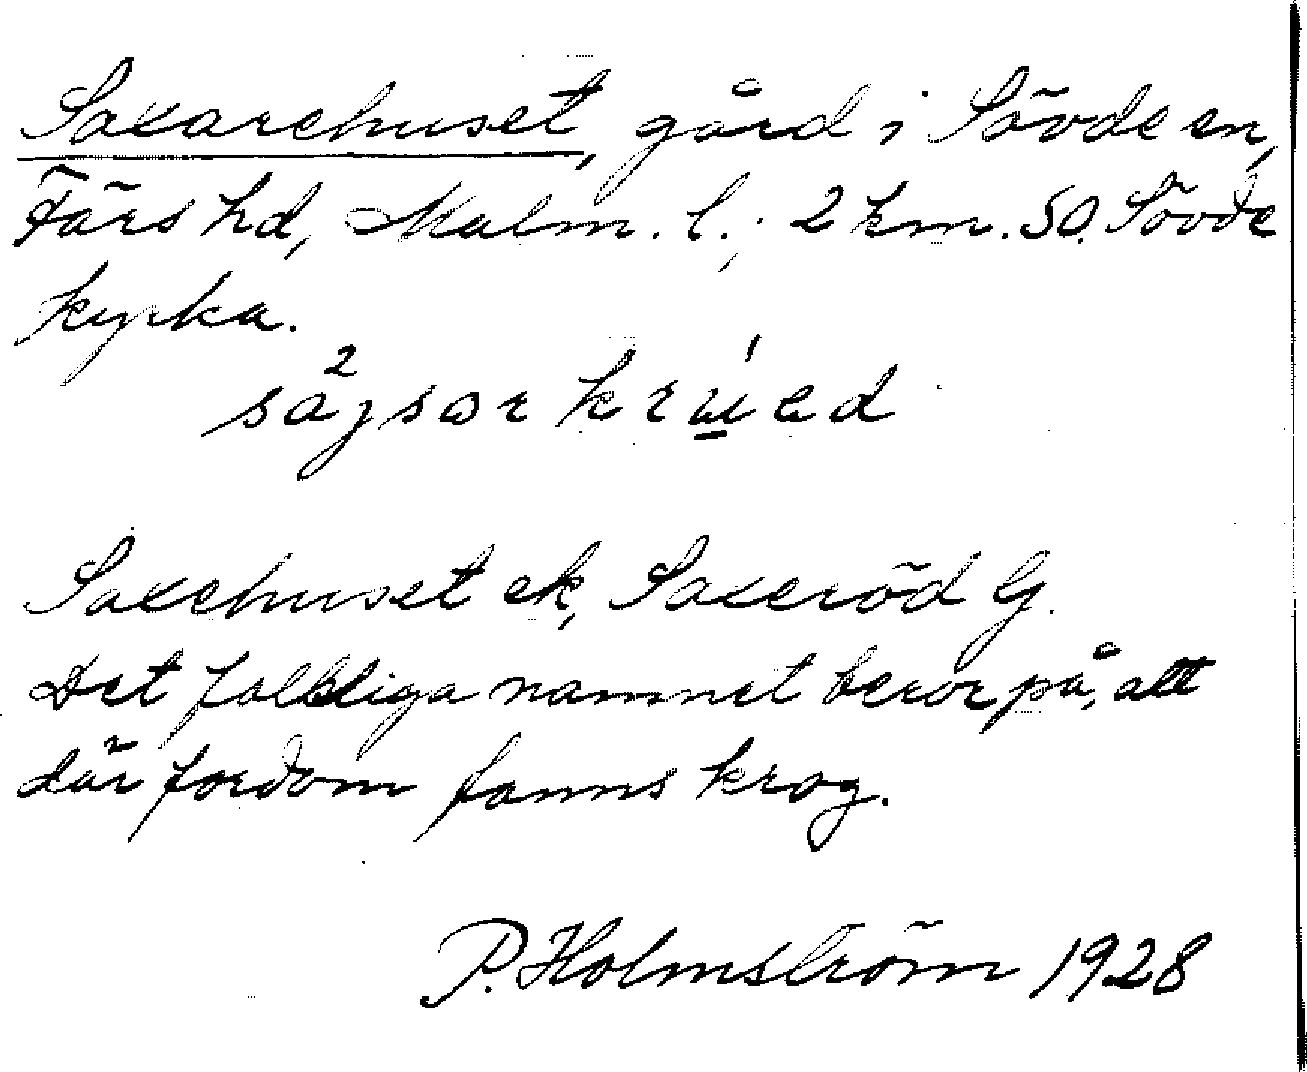 Saxarehuset, gård i Sövde sn,
Färs hd, Malm. l.; 2 km. SO. Sövde
kyrka.
Saxehuset ek, Saxeröd G.
Det folkliga namnet beror på, att
där fordom fanns krog.
P. Holmström 1928